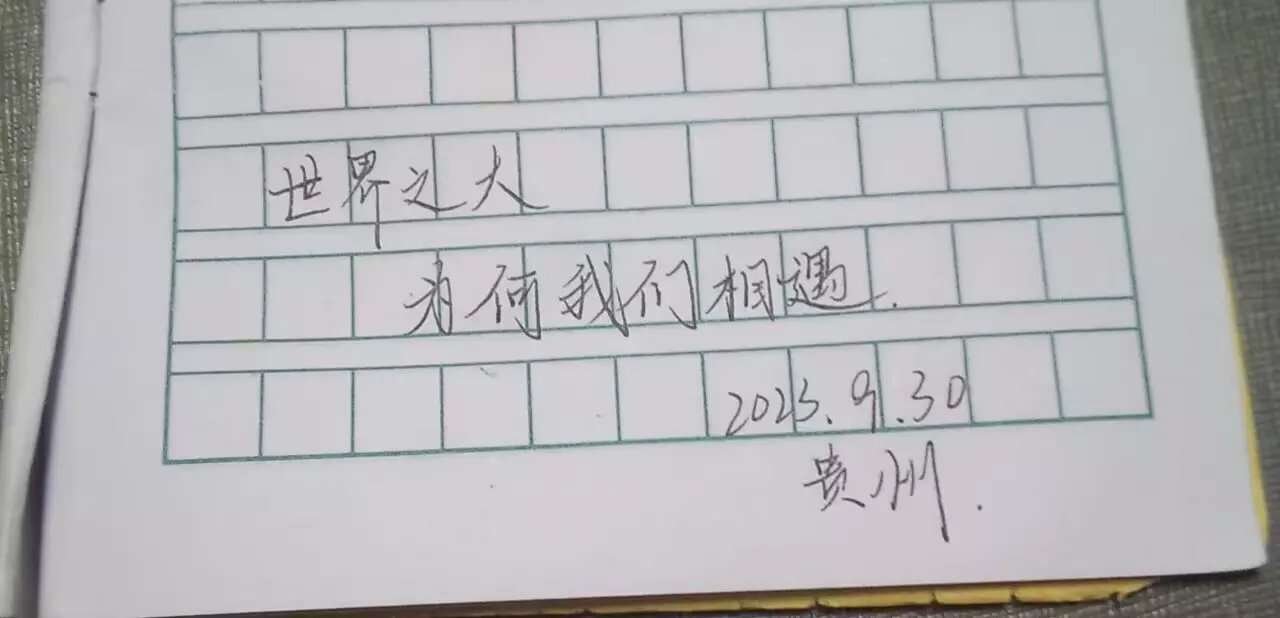 世界之大
为何我们相遇.
2023.9.30
贵州.